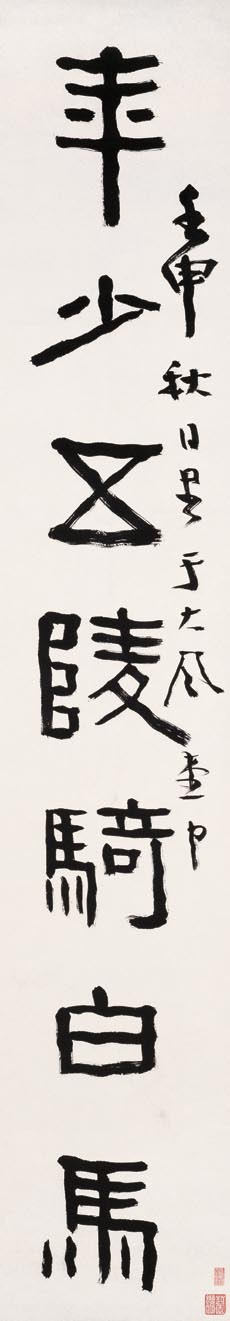 年少五陵騎白馬
壬申秋日書于大風堂中